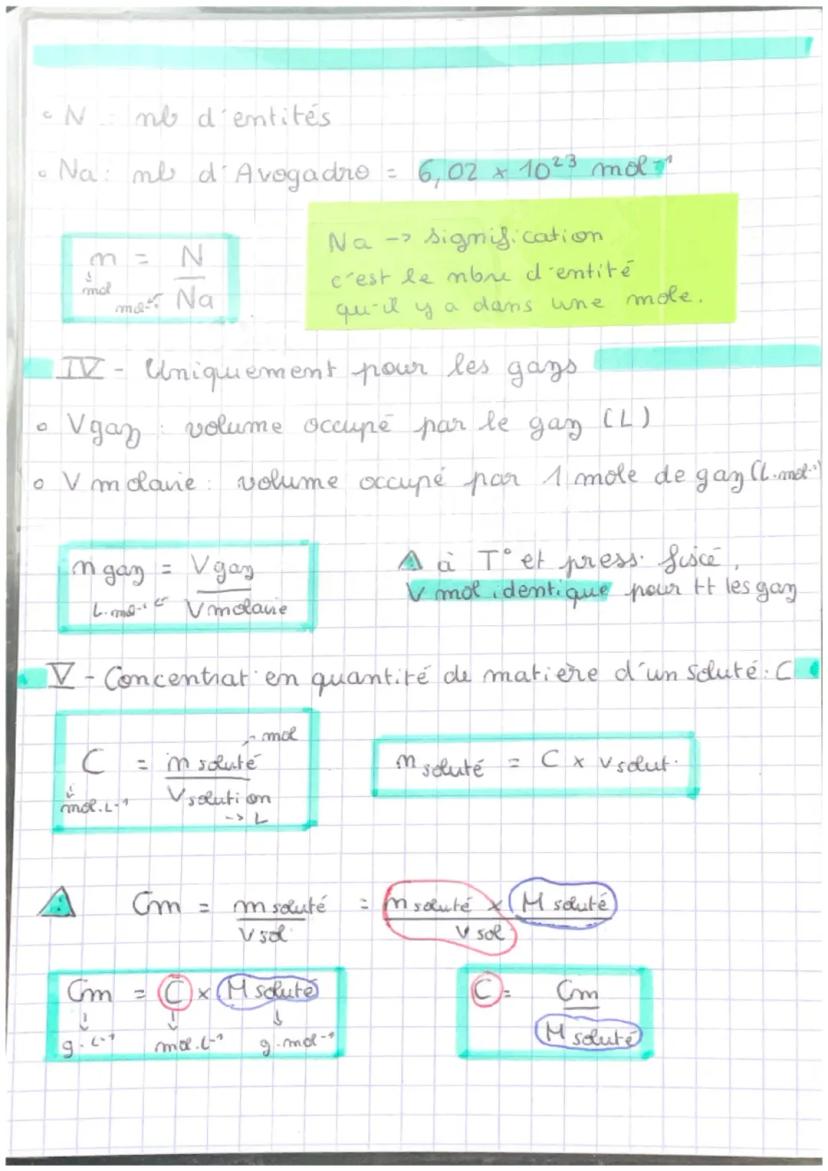 • N : nb d'entités
• Na : nb d'Avogadro = 6,02 x 10²³ mol⁻¹
n = N / Na
mol
mol⁻¹
Na -> signification
c'est le nbre d'entité
qu'il y a dans une mole.
IV - Uniquement pour les gazs
• Vgaz : volume occupé par le gaz (L)
• V molaire : volume occupé par 1 mole de gaz (L.mol⁻¹)
n gaz = V gaz / V molaire
L.mol⁻¹
⚠ à T° et press. fixé,
V mol identique pour tt les gaz
V - Concentrat° en quantité de matière d'un soluté : C
C = n soluté / V solution
mol
mol.L⁻¹
-> L
n soluté = C x V solut°
⚠ Cm = m soluté / V sol = n soluté x M soluté / V sol
Cm = C x M soluté
g.L⁻¹ mol.L⁻¹ g.mol⁻¹
C = Cm / M soluté